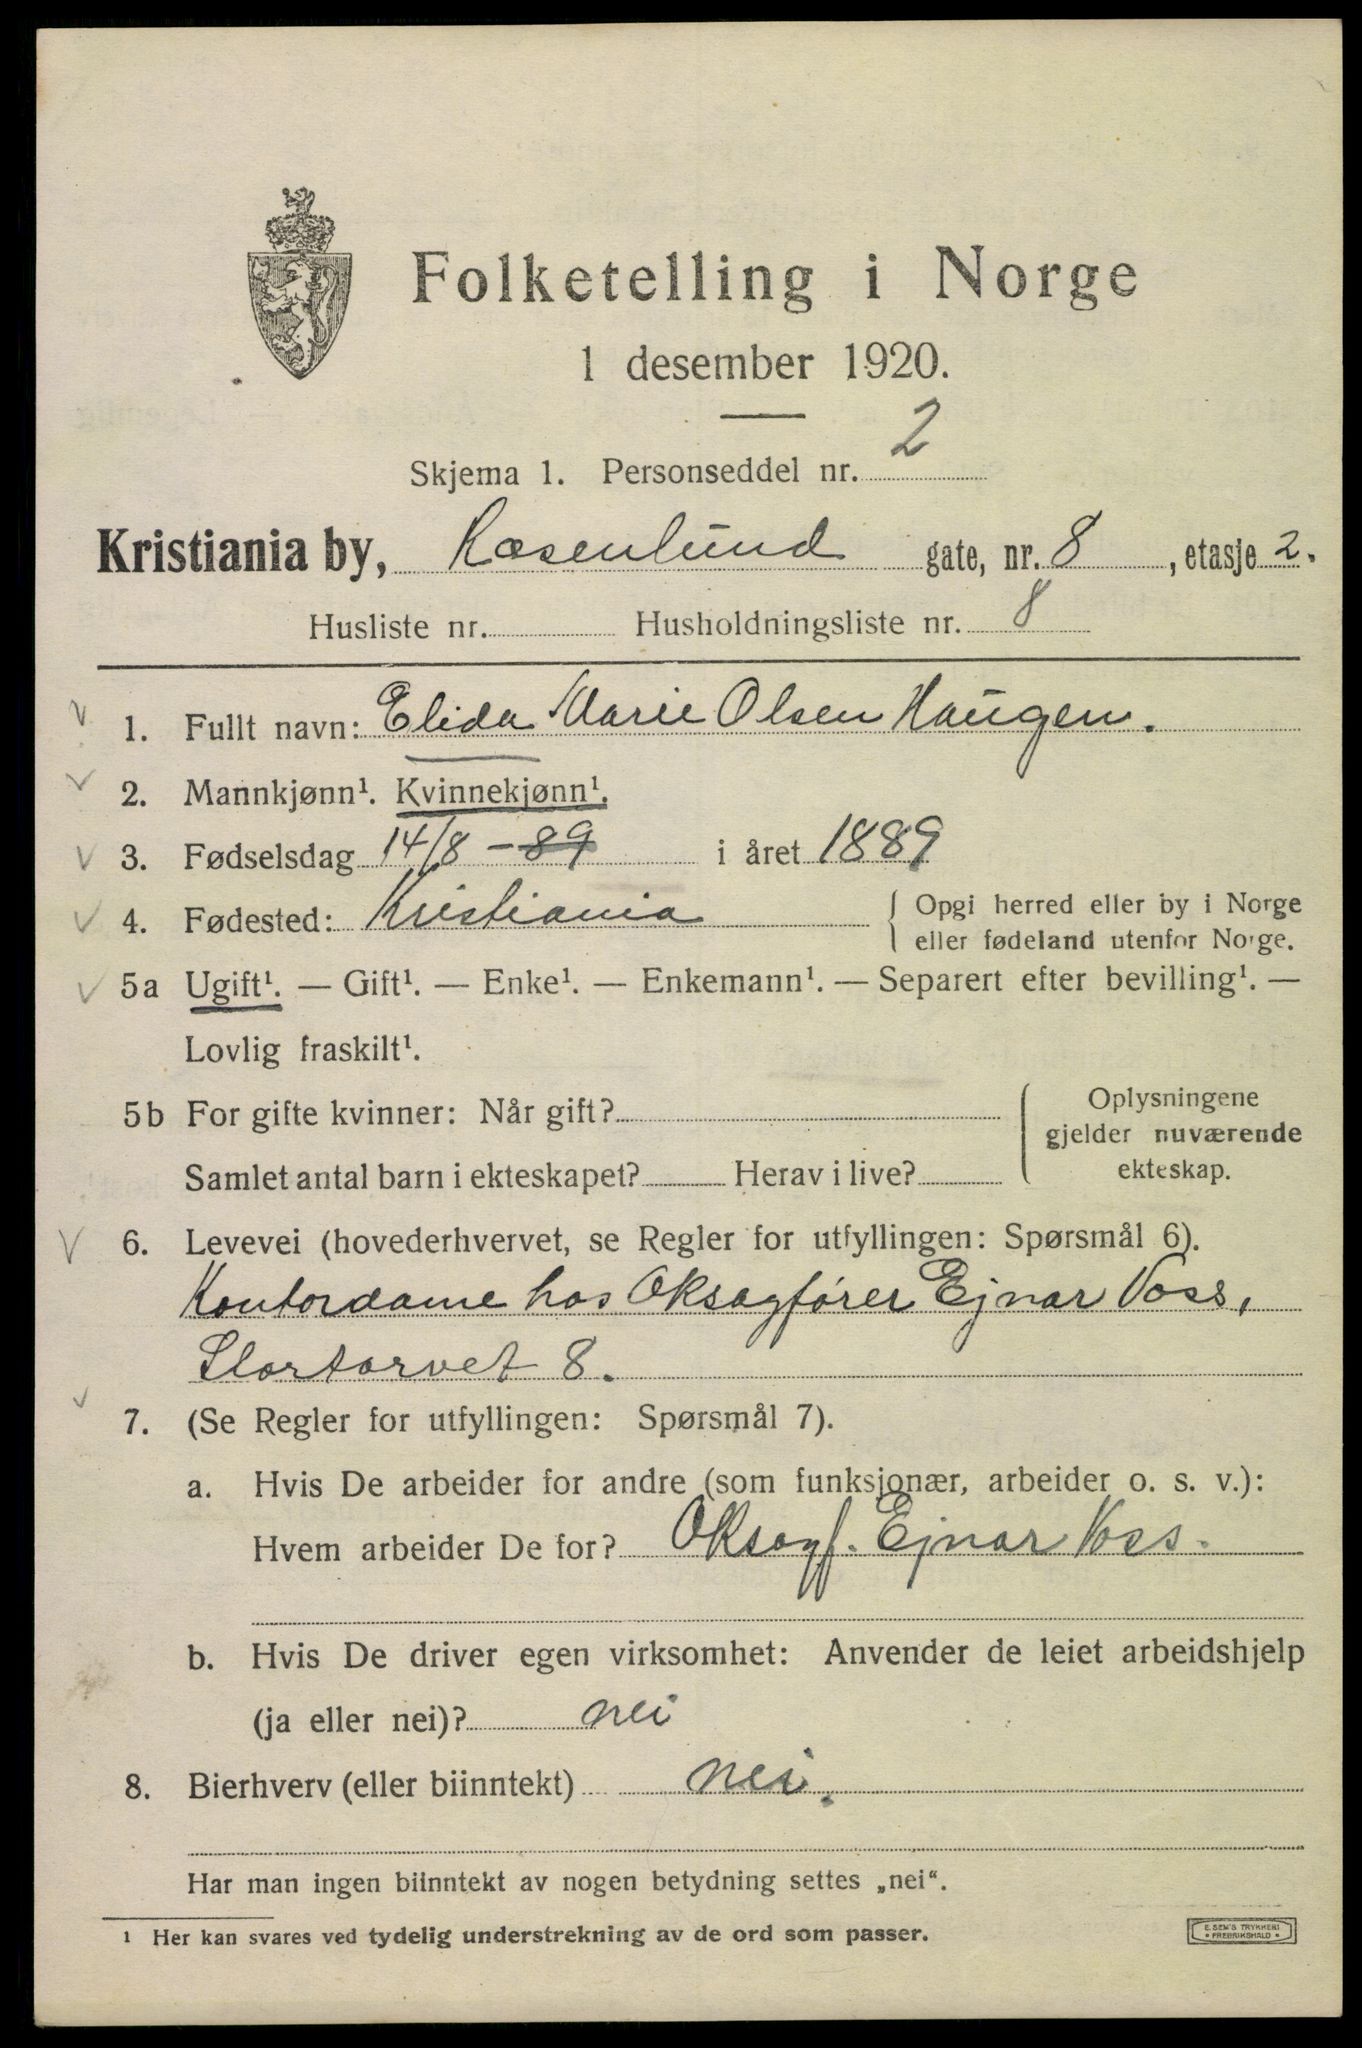 Folketelling i Norge
1 desember 1920.
Skjema 1. Personseddel nr. 2
Kristiania by, Rosenlund gate, nr. 8, etasje 2.
Husliste nr. Husholdningsliste nr. 8
1. Fullt navn: Elida Marie Olsen Haugen.
2. Mannkjønn¹. Kvinnekjønn¹.
3. Fødselsdag 14/8 - 89 i året 1889
4. Fødested: Kristiania { Opgi herred eller by i Norge
eller fødeland utenfor Norge.
5a Ugift¹. — Gift¹. — Enke¹. — Enkemann¹. — Separert efter bevilling¹. —
Lovlig fraskilt¹.
5b For gifte kvinner: Når gift? { Oplysningene
gjelder nuværende
Samlet antal barn i ekteskapet? Herav i live? ekteskap.
6. Levevei (hovederhvervet, se Regler for utfyllingen: Spørsmål 6).
Kontordame hos Oksagfører Ejnar Voss,
Stortorvet 8.
7. (Se Regler for utfyllingen: Spørsmål 7).
a. Hvis De arbeider for andre (som funksjonær, arbeider o. s. v.):
Hvem arbeider De for? Oksagf. Ejnar Voss.
b. Hvis De driver egen virksomhet: Anvender de leiet arbeidshjelp
(ja eller nei)? nei
8. Bierhverv (eller biinntekt) nei.
Har man ingen biinntekt av nogen betydning settes „nei“.
¹ Her kan svares ved tydelig understrekning av de ord som passer.
E. SEM'S TRYKKERI
• FREDRIKSHALD •